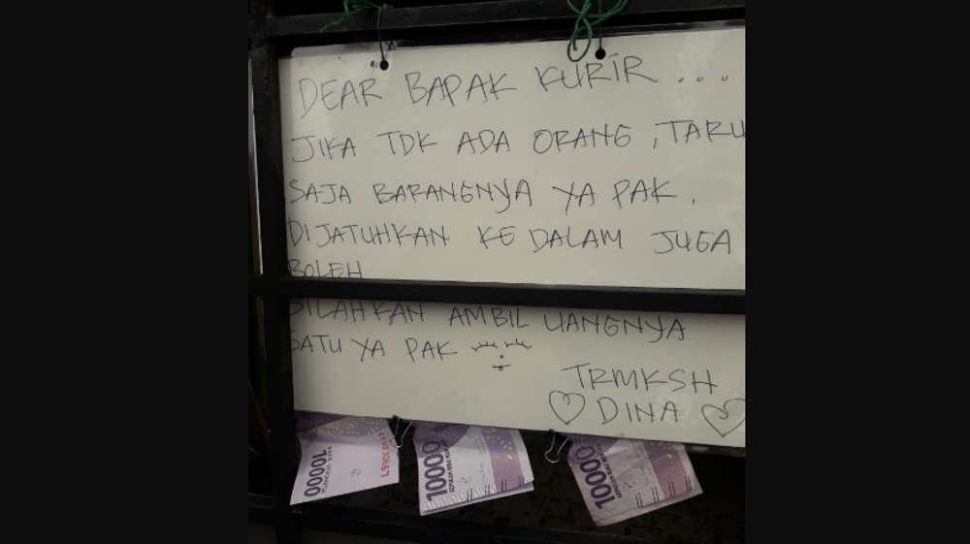 DEAR BAPAK KURIR ...
JIKA TDK ADA ORANG, TARU
SAJA BARANGNYA YA PAK.
DIJATUHKAN KE DALAM JUGA
BOLEH
SILAHKAN AMBIL UANGNYA
SATU YA PAK
TRMKSH
♡ DINA ♡
10000
10000
10000